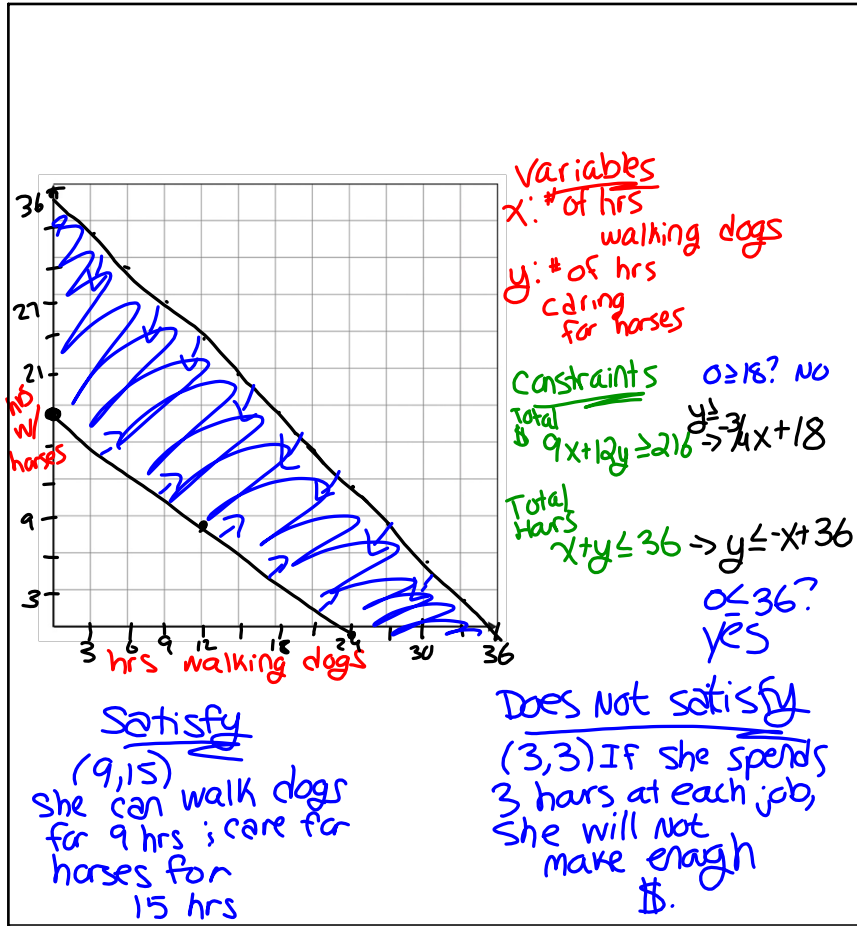 36
27
21
9
3
hrs
w/
horses
3 6 9 12 18 24 30 36
hrs walking dogs
Variables
x: # of hrs
walking dogs
y: # of hrs
caring
for horses
Constraints
0≥18? NO
Total
$ 9x+12y≥216 → y≥-3/4x+18
Total
Hours
x+y≤36 → y≤-x+36
0≤36?
yes
Satisfy
(9,15)
She can walk dogs
for 9 hrs ; care for
horses for
15 hrs
Does Not satisfy
(3,3) If she spends
3 hours at each job,
she will not
make enough
$.